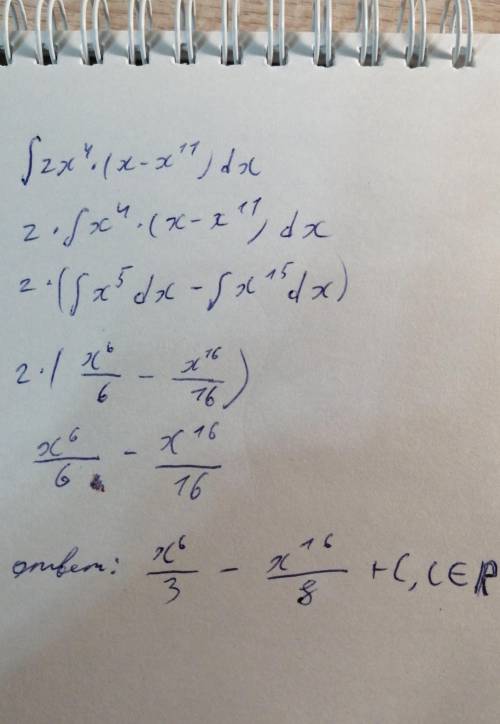 ∫2x⁴·(x-x¹¹)dx
2·∫x⁴·(x-x¹¹)dx
2·(∫x⁵dx-∫x¹⁵dx)
2·(x⁶/6 - x¹⁶/16)
x⁶/6 - x¹⁶/16
ответ: x⁶/3 - x¹⁶/8 +C, C∈R